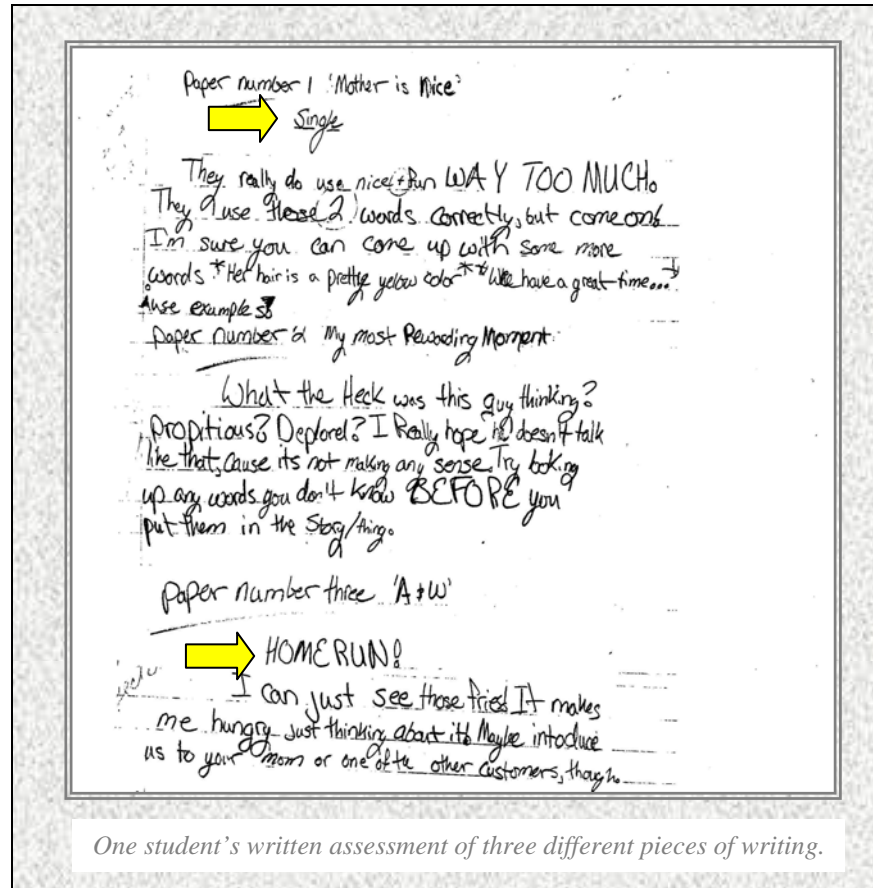 Paper number 1 'Mother is Nice'
Single
They really do use nice + fun WAY TOO MUCH.
They use these 2 words correctly, but come on!
I'm sure you can come up with some more
words *Her hair is a pretty yelow color* *We have a great time...*
use examples
paper number 2 My most Rewarding Moment
What the Heck was this guy thinking?
Propitious? Deplored? I Really hope he doesn't talk
like that, cause its not making any sense. Try looking
up any words you don't know BEFORE you
put them in the Story/thing.
Paper number three 'A & W'
HOMERUN!
I can just see those fries! It makes
me hungry just thinking about it! Maybe intoduce
us to your mom or one of the other customers, though.
One student's written assessment of three different pieces of writing.